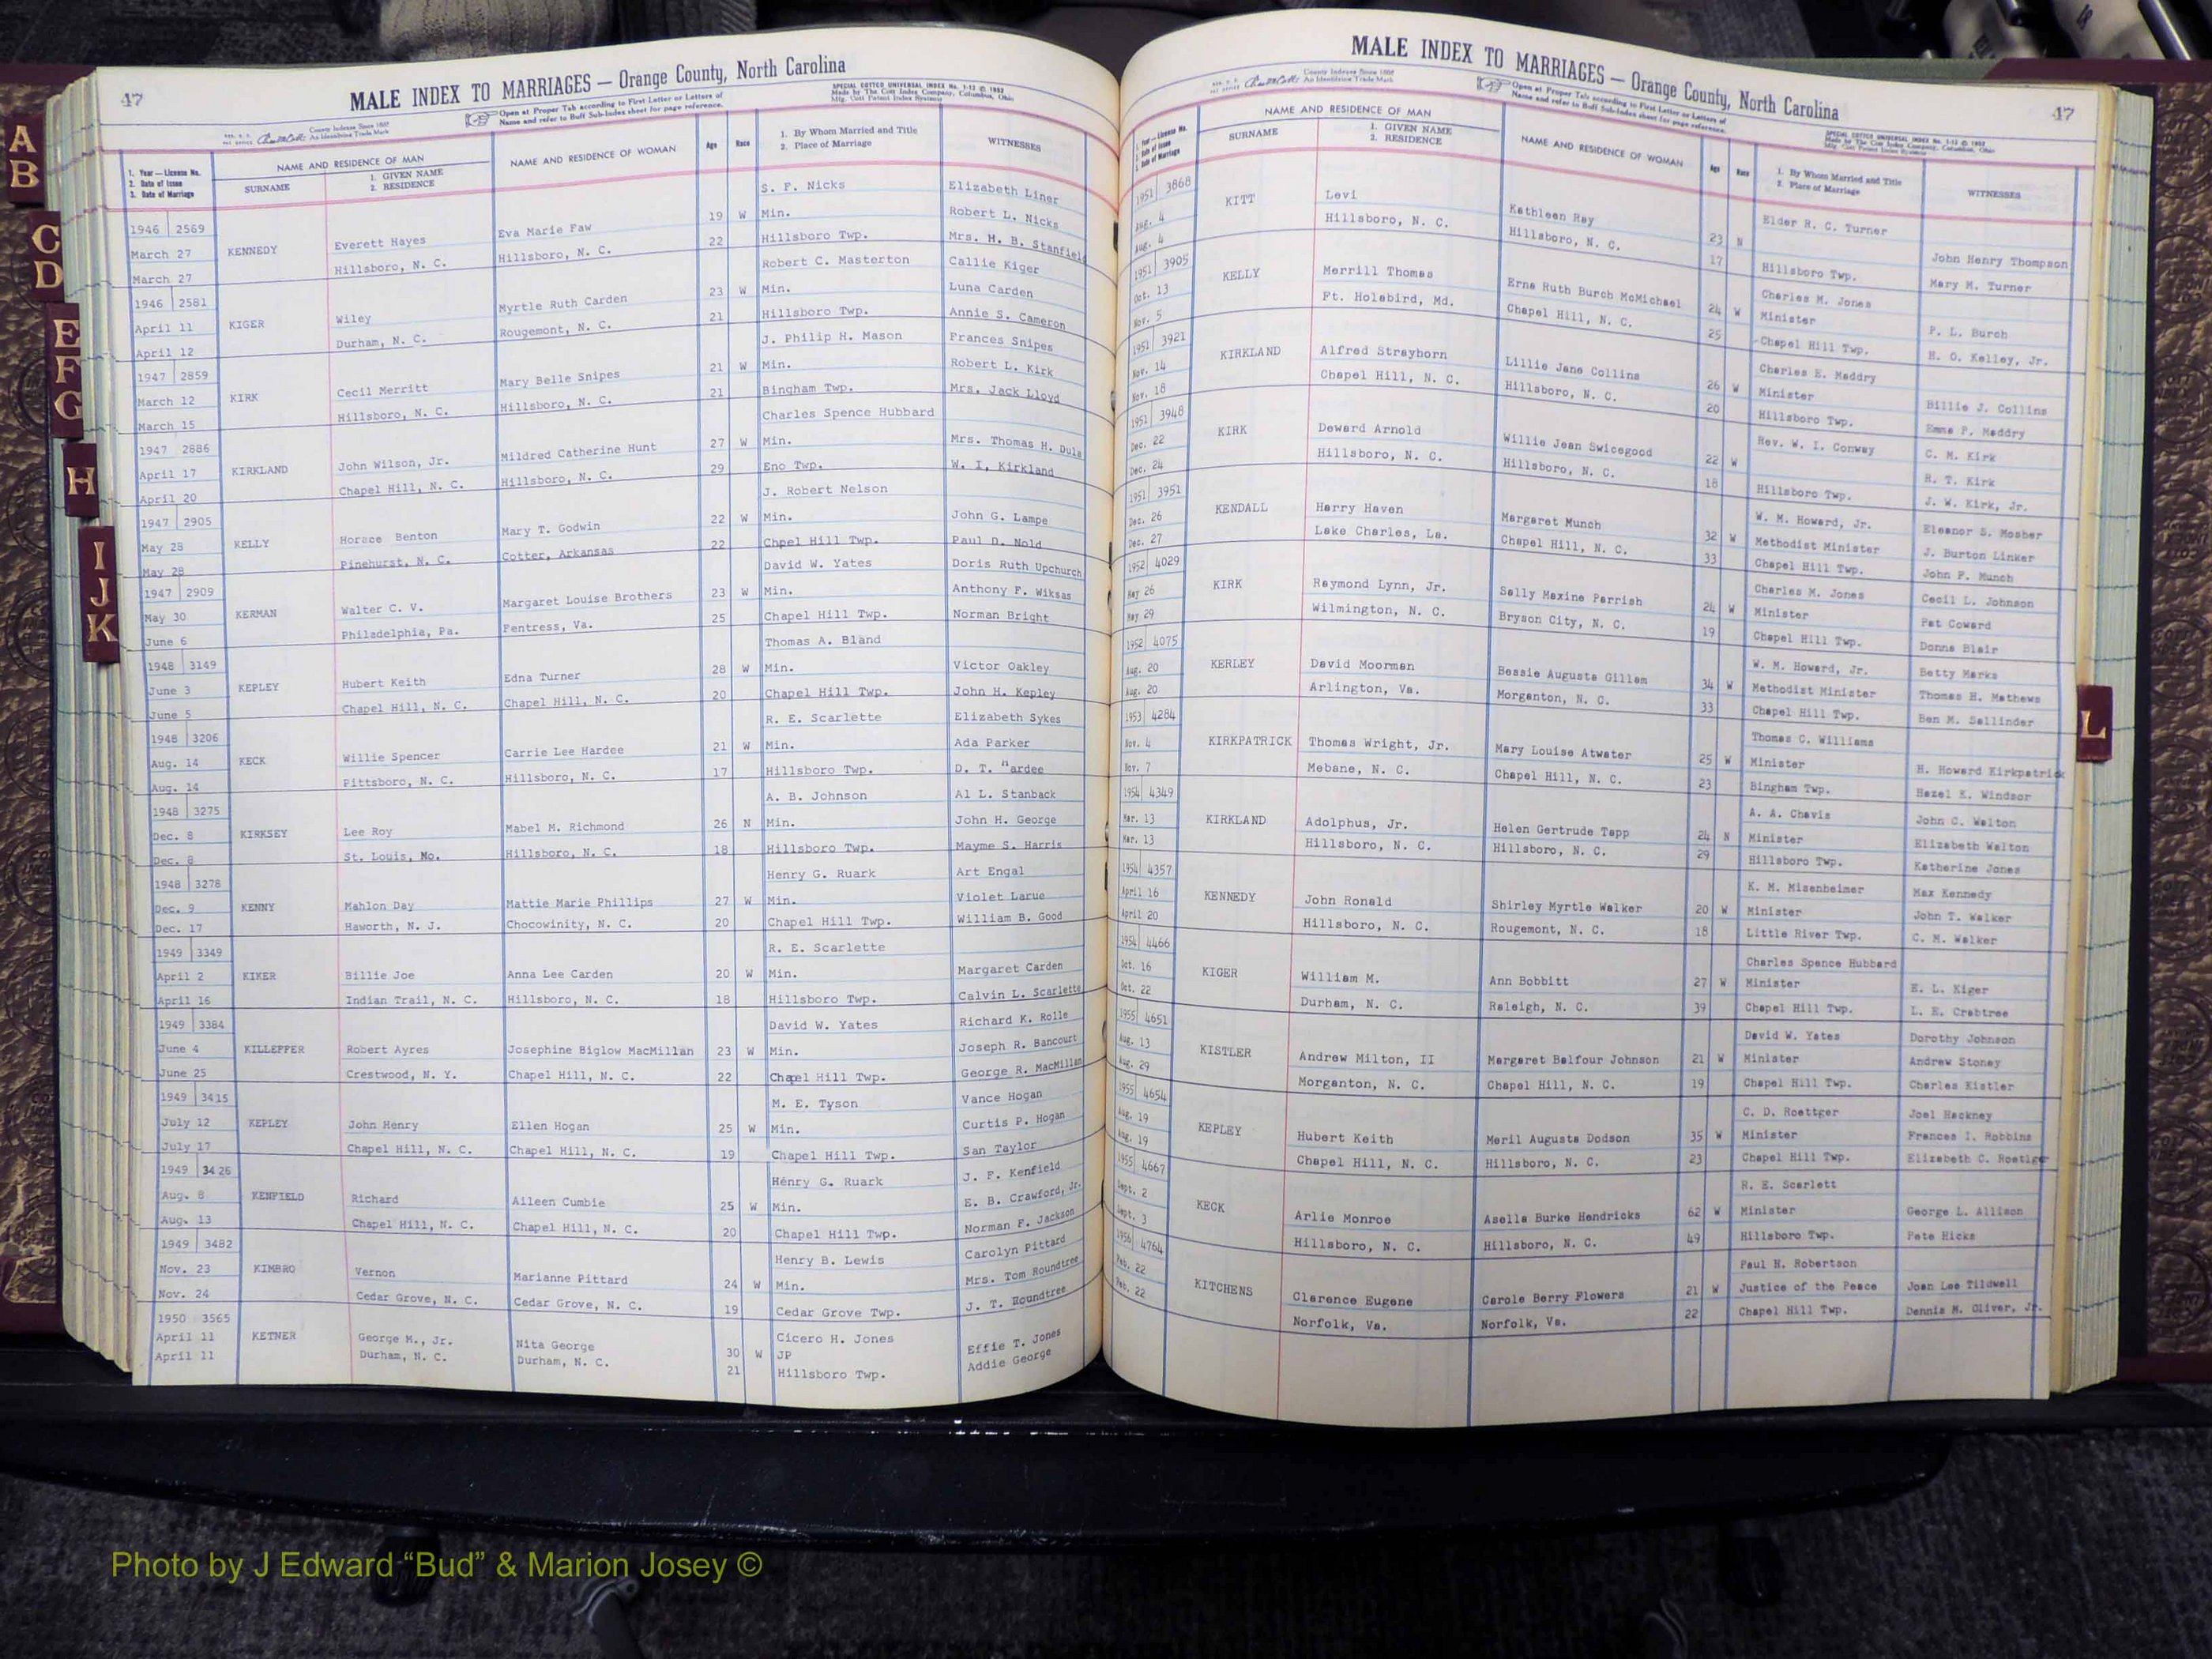 A
B
C
D
E
F
G
H
I
J
K
L
47
MALE INDEX TO MARRIAGES — Orange County, North Carolina
Open at Proper Tab according to First Letter or Letters of
Name and refer to Buff Sub-Index sheet for page reference.
SPECIAL COTTCO UNIVERSAL INDEX No. 1-13 © 1952
Made by The Cott Index Company, Columbus, Ohio
Mfg. Cott Patent Index Systems
County Indexes Since 1887
An Identifying Trade Mark
1. Year — License No.
2. Date of Issue
3. Date of Marriage
NAME AND RESIDENCE OF MAN
SURNAME
1. GIVEN NAME
2. RESIDENCE
NAME AND RESIDENCE OF WOMAN
Age
Race
1. By Whom Married and Title
2. Place of Marriage
WITNESSES
S. F. Nicks Elizabeth Liner
1946 2569 Everett Hayes Eva Marie Faw 19 W Min. Robert L. Nicks
March 27 KENNEDY Hillsboro, N. C. Hillsboro, N. C. 22 Hillsboro Twp. Mrs. H. B. Stanfield
March 27
Robert C. Masterton Callie Kiger
1946 2581 Wiley Myrtle Ruth Carden 23 W Min. Luna Carden
April 11 KIGER Durham, N. C. Rougemont, N. C. 21 Hillsboro Twp. Annie S. Cameron
April 12
J. Philip H. Mason Frances Snipes
1947 2859 Cecil Merritt Mary Belle Snipes 21 W Min. Robert L. Kirk
March 12 KIRK Hillsboro, N. C. Hillsboro, N. C. 21 Bingham Twp. Mrs. Jack Lloyd
March 15
Charles Spence Hubbard
1947 2886 John Wilson, Jr. Mildred Catherine Hunt 27 W Min. Mrs. Thomas H. Dula
April 17 KIRKLAND Chapel Hill, N. C. Hillsboro, N. C. 29 Eno Twp. W. I. Kirkland
April 20
J. Robert Nelson
1947 2905 Horace Benton Mary T. Godwin 22 W Min. John G. Lampe
May 28 KELLY Pinehurst, N. C. Cotter, Arkansas 22 Chpel Hill Twp. Paul D. Nold
May 28
David W. Yates Doris Ruth Upchurch
1947 2909 Walter C. V. Margaret Louise Brothers 23 W Min. Anthony F. Wiksas
May 30 KERMAN Philadelphia, Pa. Fentress, Va. 25 Chapel Hill Twp. Norman Bright
June 6
Thomas A. Bland
1948 3149 Hubert Keith Edna Turner 28 W Min. Victor Oakley
June 3 KEPLEY Chapel Hill, N. C. Chapel Hill, N. C. 20 Chapel Hill Twp. John H. Kepley
June 5
R. E. Scarlette Elizabeth Sykes
1948 3206 Willie Spencer Carrie Lee Hardee 21 W Min. Ada Parker
Aug. 14 KECK Pittsboro, N. C. Hillsboro, N. C. 17 Hillsboro Twp. D. T. Hardee
Aug. 14
A. B. Johnson Al L. Stanback
1948 3275 Lee Roy Mabel M. Richmond 26 N Min. John H. George
Dec. 8 KIRKSEY St. Louis, Mo. Hillsboro, N. C. 18 Hillsboro Twp. Mayme S. Harris
Dec. 8
Henry G. Ruark Art Engal
1948 3278 Mahlon Day Mattie Marie Phillips 27 W Min. Violet Larue
Dec. 9 KENNY Haworth, N. J. Chocowinity, N. C. 20 Chapel Hill Twp. William B. Good
Dec. 17
R. E. Scarlette
1949 3349
April 2 KIKER Billie Joe Anna Lee Carden 20 W Min. Margaret Carden
April 16 Indian Trail, N. C. Hillsboro, N. C. 18 Hillsboro Twp. Calvin L. Scarlette
1949 3384 David W. Yates Richard K. Rolle
June 4 KILLEFFER Robert Ayres Josephine Biglow MacMillan 23 W Min. Joseph R. Bancourt
June 25 Crestwood, N. Y. Chapel Hill, N. C. 22 Chapel Hill Twp. George R. MacMillan
1949 3415 M. E. Tyson Vance Hogan
July 12 KEPLEY John Henry Ellen Hogan 25 W Min. Curtis P. Hogan
July 17 Chapel Hill, N. C. Chapel Hill, N. C. 19 Chapel Hill Twp. San Taylor
1949 3426 Henry G. Ruark J. F. Kenfield
Aug. 8 KENFIELD Richard Aileen Cumbie 25 W Min. E. B. Crawford, Jr.
Aug. 13 Chapel Hill, N. C. Chapel Hill, N. C. 20 Chapel Hill Twp. Norman F. Jackson
1949 3482 Henry B. Lewis Carolyn Pittard
Nov. 23 KIMBRO Vernon Marianne Pittard 24 W Min. Mrs. Tom Roundtree
Nov. 24 Cedar Grove, N. C. Cedar Grove, N. C. 19 Cedar Grove Twp. J. T. Roundtree
1950 3565 Cicero H. Jones Effie T. Jones
April 11 KETNER George M., Jr. Nita George 30 W JP Addie George
April 11 Durham, N. C. Durham, N. C. 21 Hillsboro Twp.
MALE INDEX TO MARRIAGES — Orange County, North Carolina
47
County Indexes Since 1887
An Identifying Trade Mark
Open at Proper Tab according to First Letter or Letters of
Name and refer to Buff Sub-Index sheet for page reference.
SPECIAL COTTCO UNIVERSAL INDEX No. 1-13 © 1952
Made by The Cott Index Company, Columbus, Ohio
Mfg. Cott Patent Index Systems
1. Year — License No.
2. Date of Issue
3. Date of Marriage
NAME AND RESIDENCE OF MAN
SURNAME
1. GIVEN NAME
2. RESIDENCE
NAME AND RESIDENCE OF WOMAN
Age
Race
1. By Whom Married and Title
2. Place of Marriage
WITNESSES
1951 3868 KITT Levi Kathleen Ray Elder R. C. Turner
Aug. 4 Hillsboro, N. C. Hillsboro, N. C. 23 N John Henry Thompson
Aug. 4 17 Hillsboro Twp. Mary M. Turner
1951 3905 KELLY Merrill Thomas Erna Ruth Burch McMichael Charles M. Jones
Oct. 13 Ft. Holabird, Md. Chapel Hill, N. C. 24 W Minister P. L. Burch
Nov. 5 25 Chapel Hill Twp. H. O. Kelley, Jr.
1951 3921 KIRKLAND Alfred Strayhorn Lillie Jane Collins Charles E. Maddry
Nov. 14 Chapel Hill, N. C. Hillsboro, N. C. 26 W Minister Billie J. Collins
Nov. 18 20 Hillsboro Twp. Emma P. Maddry
1951 3948 KIRK Deward Arnold Willie Jean Swicegood Rev. W. I. Conway C. M. Kirk
Dec. 22 Hillsboro, N. C. Hillsboro, N. C. 22 W R. T. Kirk
Dec. 24 18 Hillsboro Twp. J. W. Kirk, Jr.
1951 3951 KENDALL Harry Haven Margaret Munch W. M. Howard, Jr. Eleanor S. Mosher
Dec. 26 Lake Charles, La. Chapel Hill, N. C. 32 W Methodist Minister J. Burton Linker
Dec. 27 33 Chapel Hill Twp. John F. Munch
1952 4029 KIRK Raymond Lynn, Jr. Sally Maxine Parrish Charles M. Jones Cecil L. Johnson
May 26 Wilmington, N. C. Bryson City, N. C. 24 W Minister Pat Coward
May 29 19 Chapel Hill Twp. Donna Blair
1952 4075 KERLEY David Moorman Bessie Augusta Gillam W. M. Howard, Jr. Betty Marks
Aug. 20 Arlington, Va. Morganton, N. C. 34 W Methodist Minister Thomas H. Mathews
Aug. 20 33 Chapel Hill Twp. Ben M. Sallinder
1953 4284 KIRKPATRICK Thomas Wright, Jr. Mary Louise Atwater Thomas C. Williams
Nov. 4 Mebane, N. C. Chapel Hill, N. C. 25 W Minister H. Howard Kirkpatrick
Nov. 7 23 Bingham Twp. Hazel K. Windsor
1954 4349 KIRKLAND Adolphus, Jr. Helen Gertrude Tapp A. A. Chavis John C. Walton
Mar. 13 Hillsboro, N. C. Hillsboro, N. C. 24 N Minister Elizabeth Walton
Mar. 13 29 Hillsboro Twp. Katherine Jones
1954 4357 KENNEDY John Ronald Shirley Myrtle Walker K. M. Misenheimer Max Kennedy
April 16 Hillsboro, N. C. Rougemont, N. C. 20 W Minister John T. Walker
April 20 18 Little River Twp. C. M. Walker
1954 4466 KIGER William M. Ann Bobbitt Charles Spence Hubbard
Oct. 16 Durham, N. C. Raleigh, N. C. 27 W Minister E. L. Kiger
Oct. 22 39 Chapel Hill Twp. L. E. Crabtree
1955 4651 KISTLER Andrew Milton, II Margaret Balfour Johnson David W. Yates Dorothy Johnson
Aug. 13 Morganton, N. C. Chapel Hill, N. C. 21 W Minister Andrew Stoney
Aug. 29 19 Chapel Hill Twp. Charles Kistler
1955 4654 KEPLEY Hubert Keith Meril Augusta Dodson C. D. Roettger Joel Hackney
Aug. 19 Chapel Hill, N. C. Hillsboro, N. C. 35 W Minister Frances I. Robbins
Aug. 19 23 Chapel Hill Twp. Elizabeth C. Roetiger
1955 4667 KECK Arlie Monroe Asella Burke Hendricks R. E. Scarlett
Sept. 2 Hillsboro, N. C. Hillsboro, N. C. 62 W Minister George L. Allison
Sept. 3 49 Hillsboro Twp. Pete Hicks
1956 4764 KITCHENS Clarence Eugene Carole Berry Flowers Paul H. Robertson
Feb. 22 Norfolk, Va. Norfolk, Va. 21 W Justice of the Peace Joan Lee Tildwell
Feb. 22 22 Chapel Hill Twp. Dennis M. Oliver, Jr.
Photo by J Edward “Bud” & Marion Josey ©